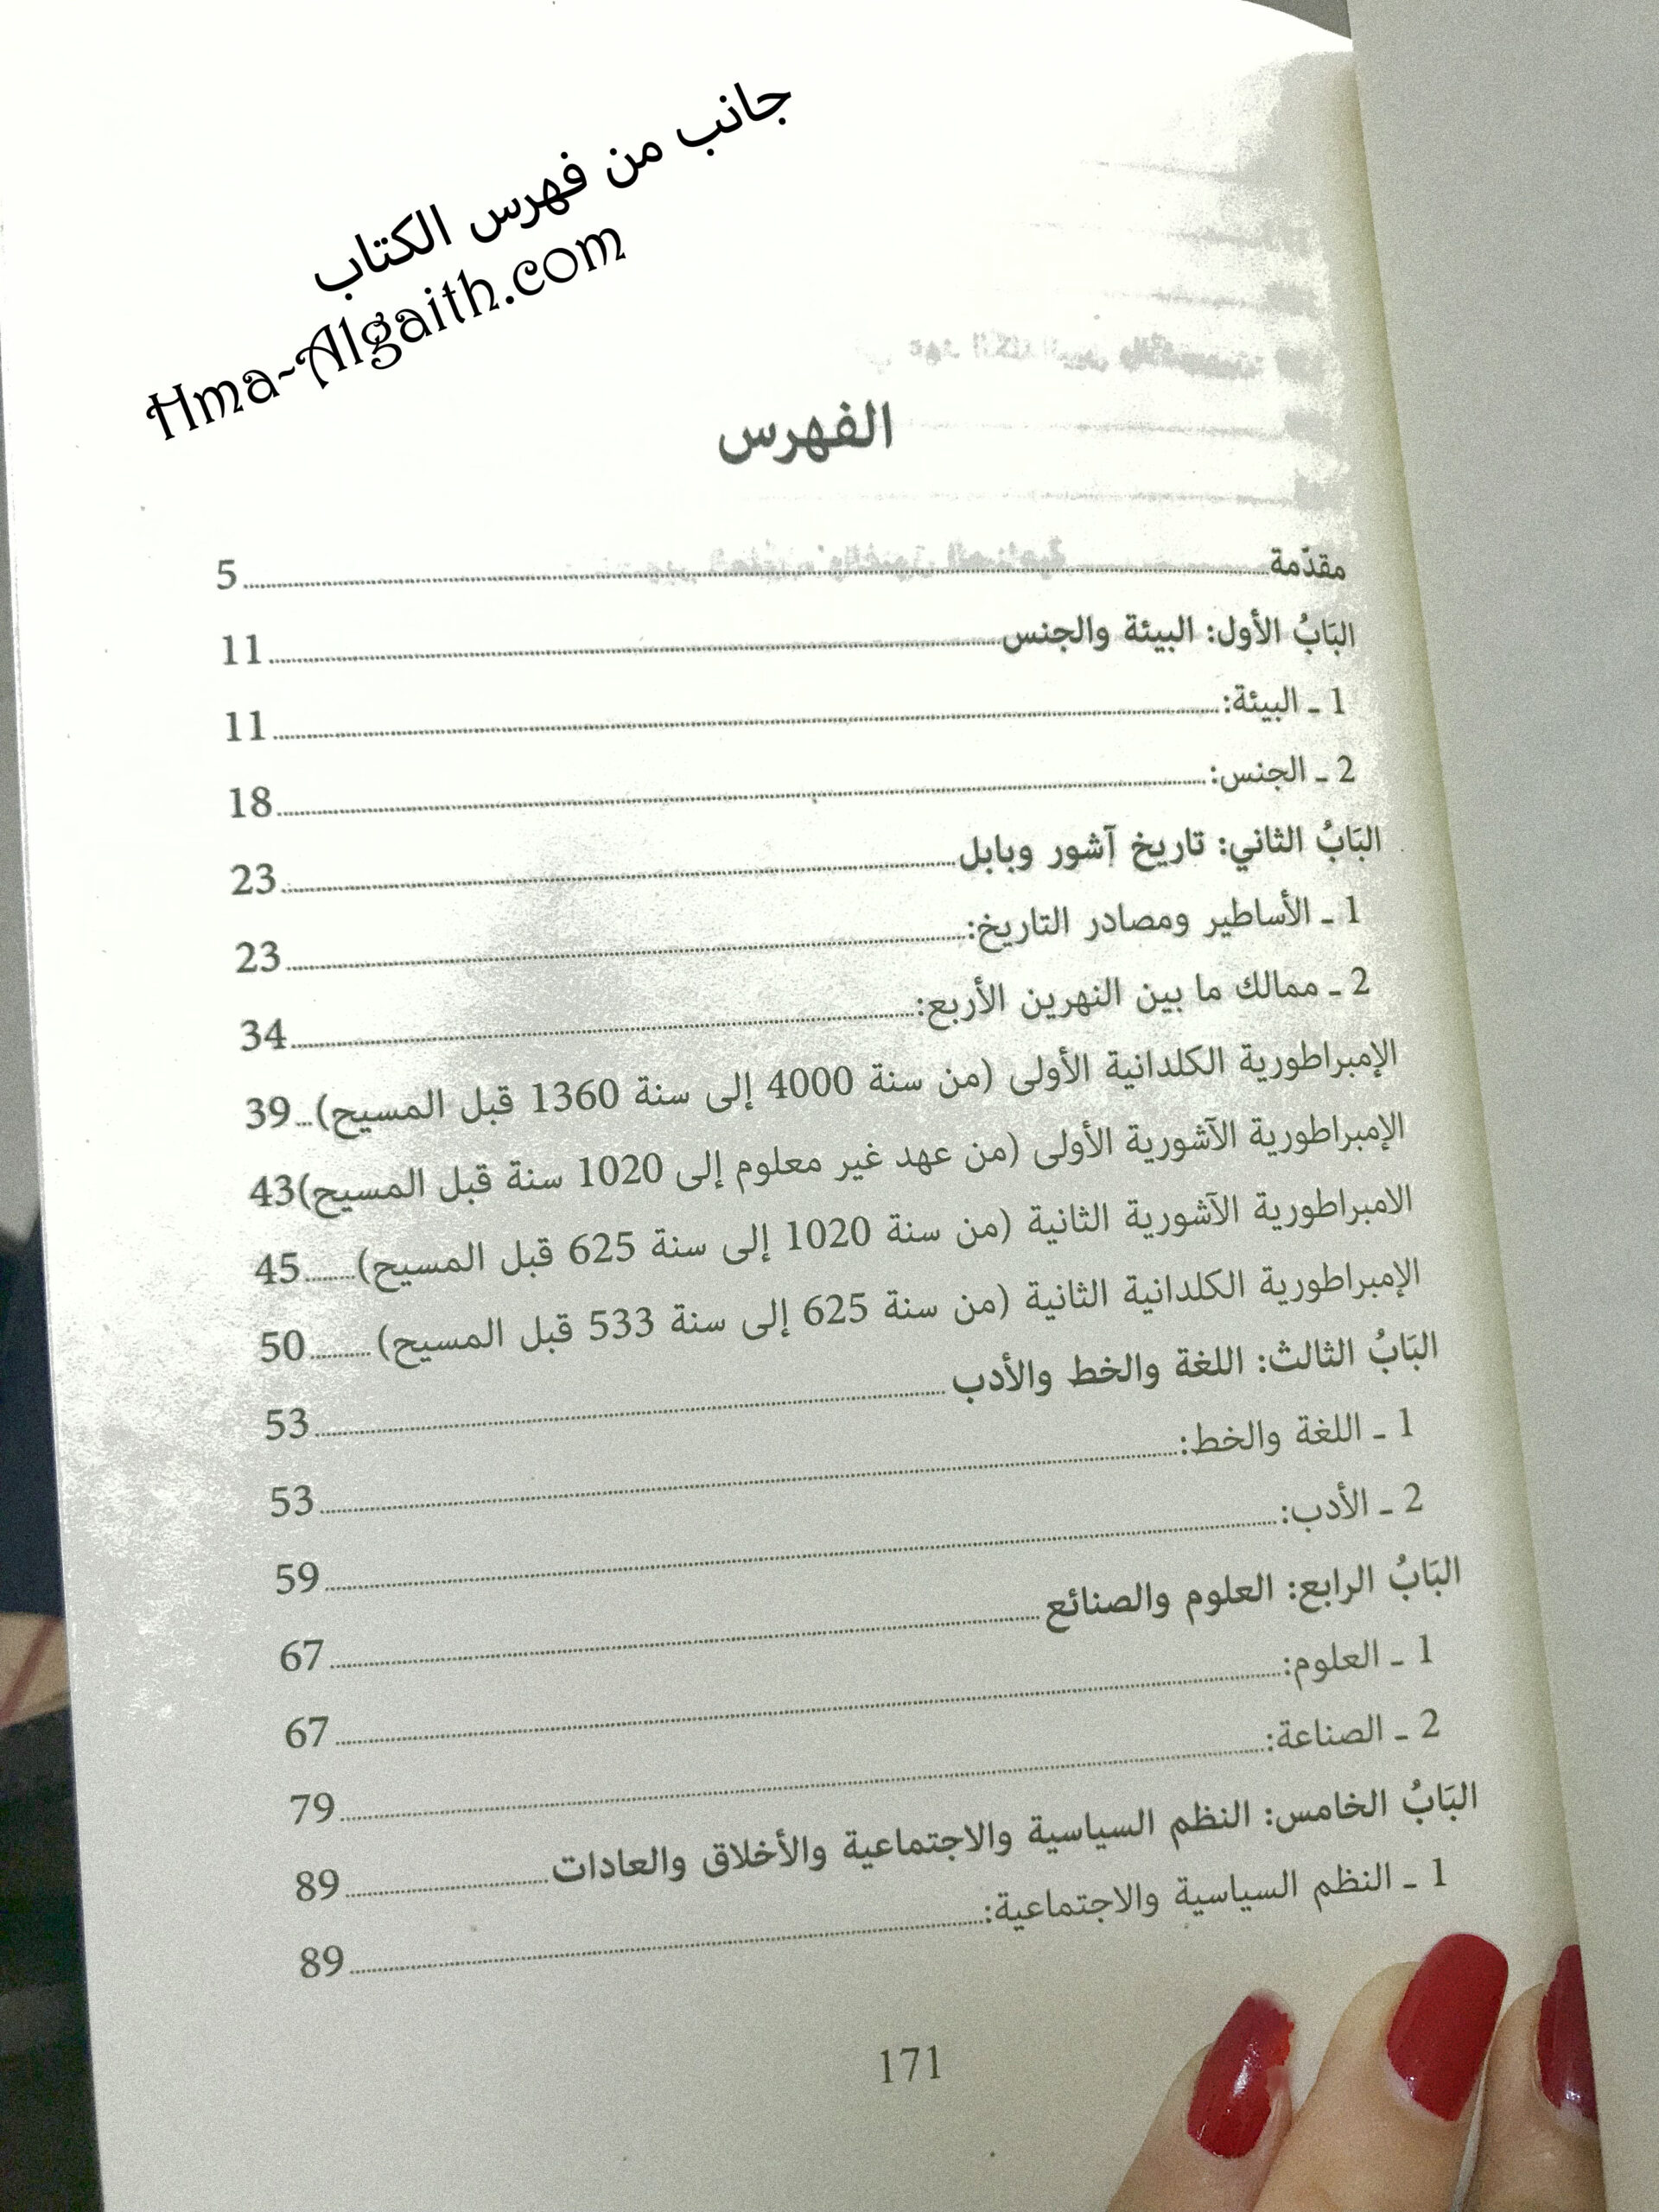 جانب من فهرس الكتاب
Hma-Algaith.com
الفهرس
مقدّمة 5
البَابُ الأول: البيئة والجنس 11
1 ـ البيئة: 11
2 ـ الجنس: 18
البَابُ الثاني: تاريخ آشور وبابل 23
1 ـ الأساطير ومصادر التاريخ: 23
2 ـ ممالك ما بين النهرين الأربع: 34
الإمبراطورية الكلدانية الأولى (من سنة 4000 إلى سنة 1360 قبل المسيح) 39
الإمبراطورية الآشورية الأولى (من عهد غير معلوم إلى 1020 سنة قبل المسيح) 43
الامبراطورية الآشورية الثانية (من سنة 1020 إلى سنة 625 قبل المسيح) 45
الإمبراطورية الكلدانية الثانية (من سنة 625 إلى سنة 533 قبل المسيح) 50
البَابُ الثالث: اللغة والخط والأدب 53
1 ـ اللغة والخط: 53
2 ـ الأدب: 59
البَابُ الرابع: العلوم والصنائع 67
1 ـ العلوم: 67
2 ـ الصناعة: 79
البَابُ الخامس: النظم السياسية والاجتماعية والأخلاق والعادات 89
1 ـ النظم السياسية والاجتماعية: 89
171